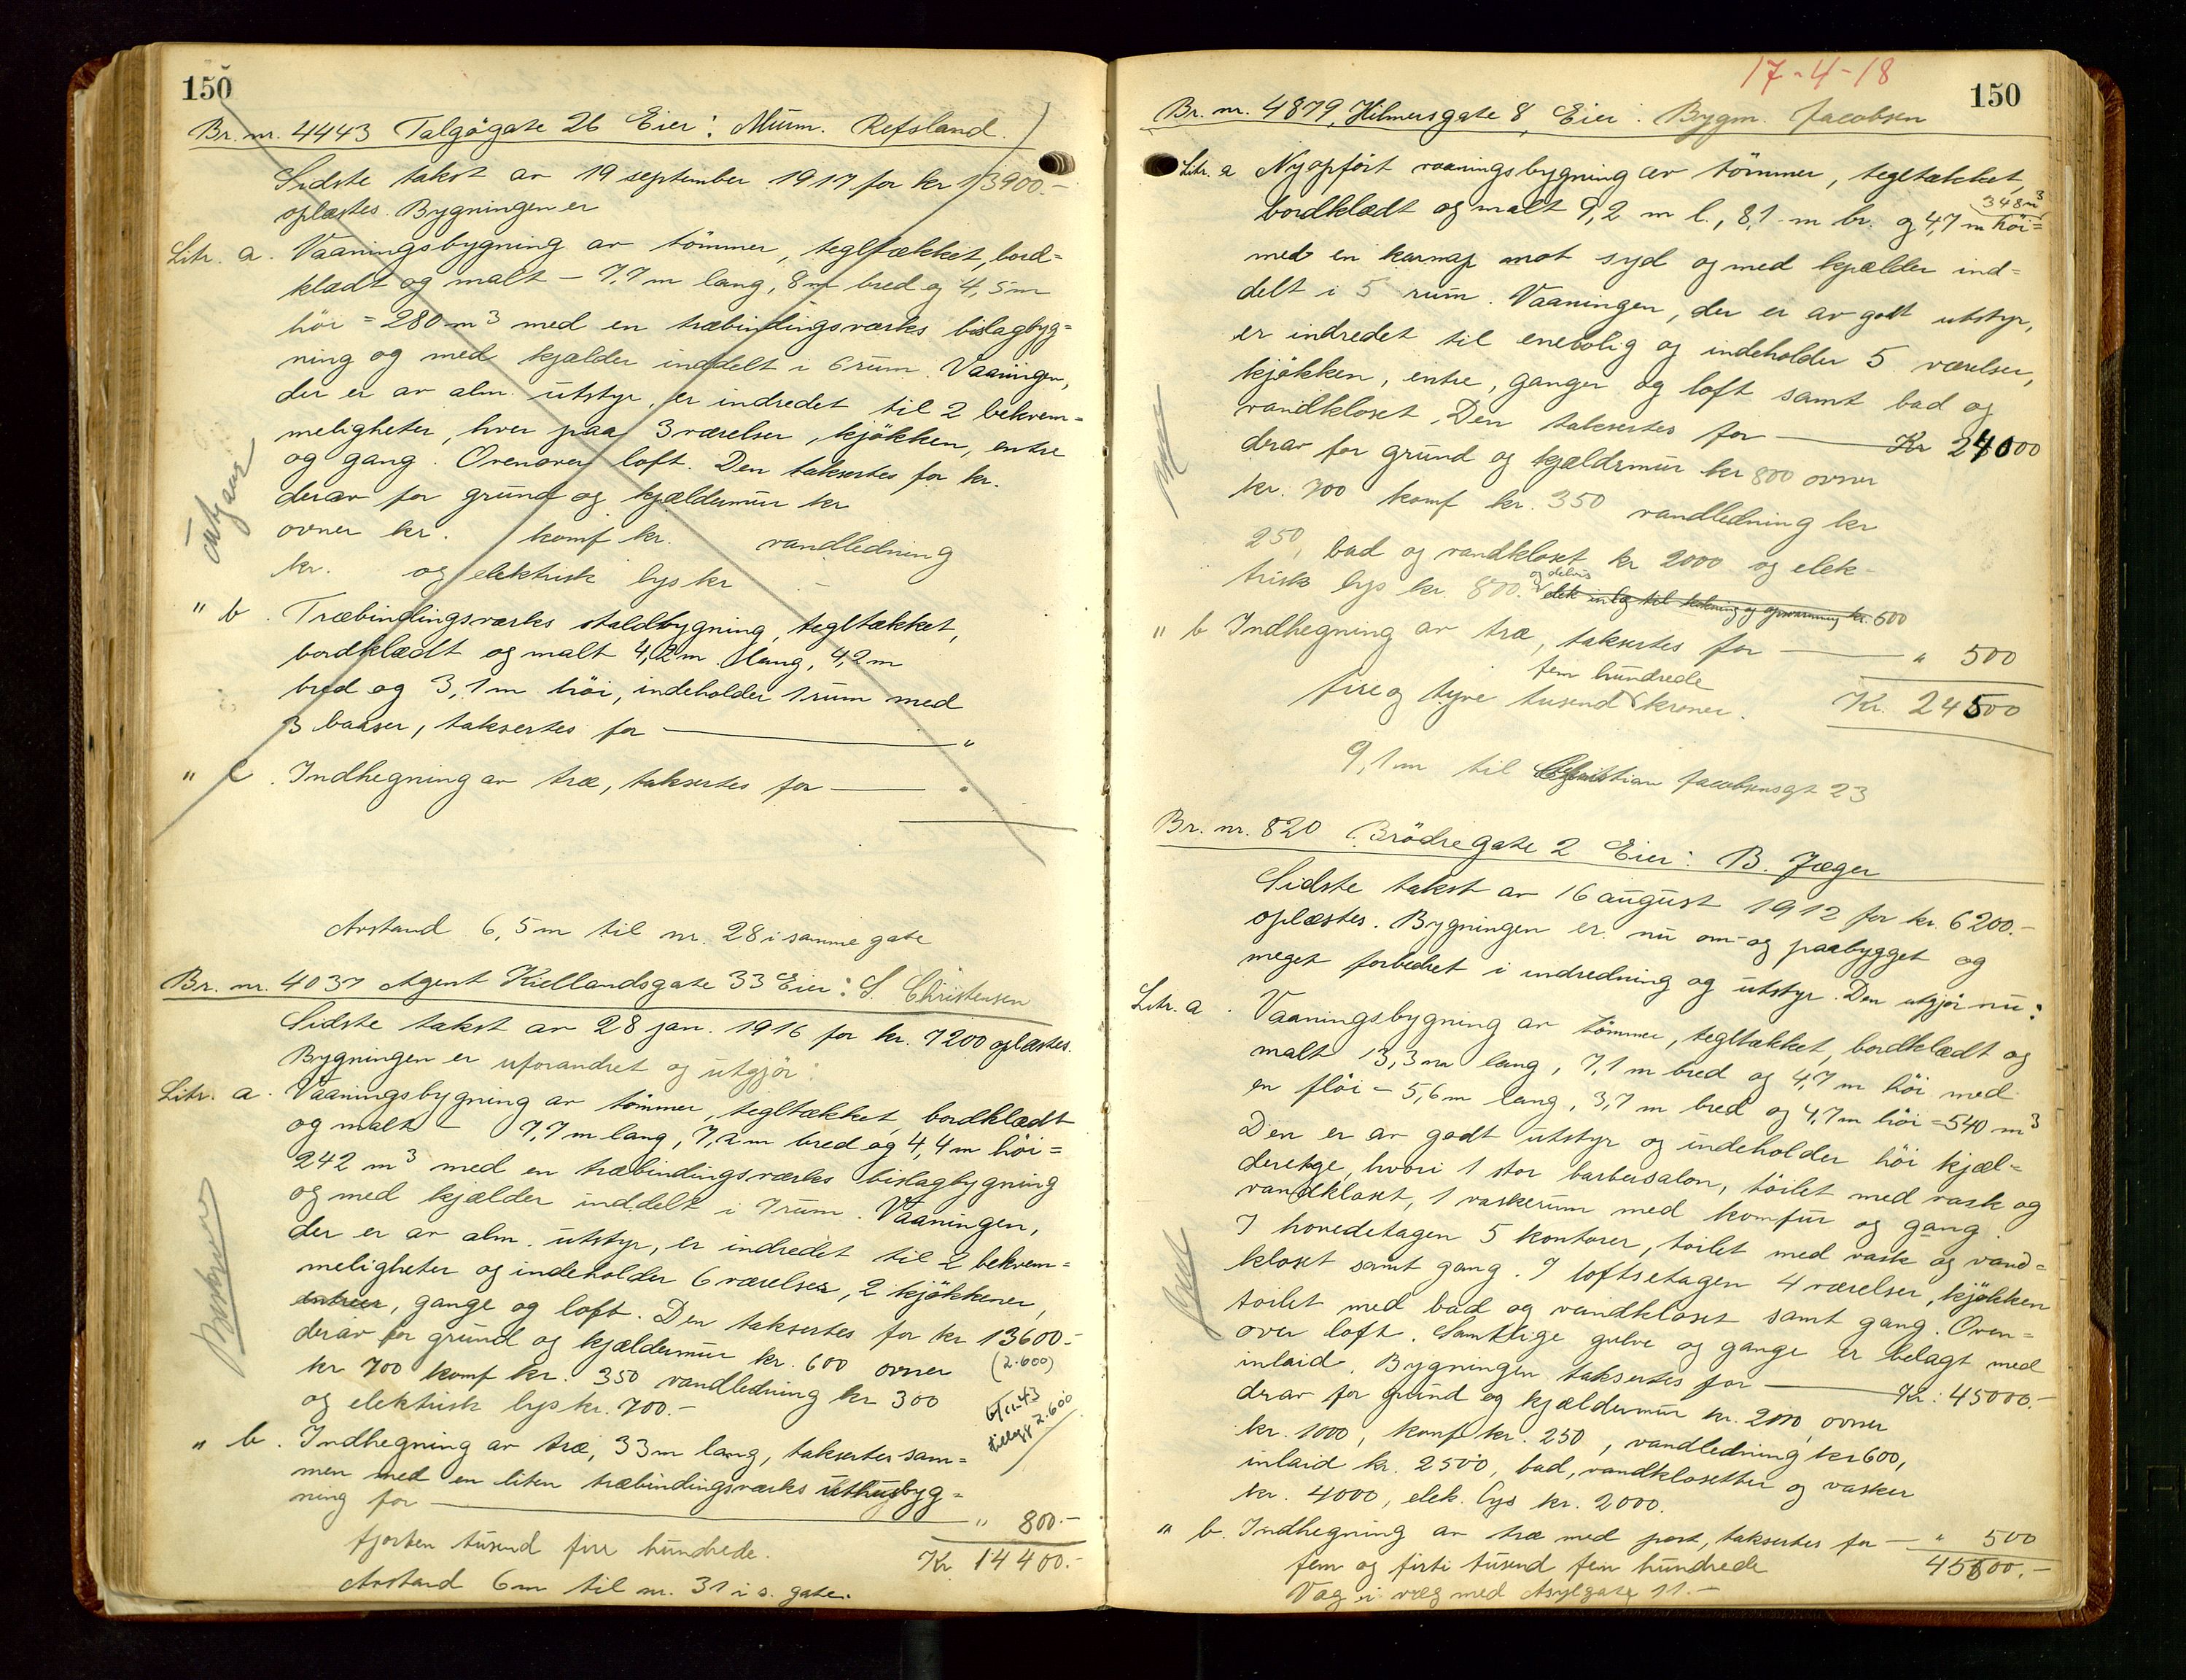 150
Br. nr. 4443 Talgögate 26 Eier: Mürm. Refsland.
Sidste takst av 19 september 1917 for kr 13900.-
oplæstes. Bygningen er
Litr. a. Vaaningsbygning av tömmer, tegltækket, bord=
klædt og malt - 7,7 m lang, 8 m bred og 4,5 m
höi = 280 m³ med en træbindingsværks bislagbyg=
ning og med kjælder inddelt i 6 rum. Vaaningen,
der er av alm. utstyr, er indredet til 2 bekvem=
meligheter, hver paa 3 værelser, kjökken, entre
og gang. Ovenover loft. Den taksertes for kr.
derav for grund og kjældermur kr
ovner kr. komf kr. vandledning
kr. og elektrisk lys kr -
Utgaar
" b Træbindingsværks staldbygning, tegltækket,
bordklædt og malt 4,2 m. lang, 4,2 m
bred og 3,1 m höi, indeholder 1 rum med
3 baaser, taksertes for "
" c. Indhegning av træ, taksertes for "
Avstand 6,5 m til nr. 28 i samme gate
Br. nr. 4037 Agent Kiellandsgate 33 Eier: S. Christensen
Sidste takst av 28 jan. 1916 for kr. 7200 oplæstes.
Bygningen er uforandret og utgjör:
Litr. a. Vaaningsbygning av tömmer, tegltækket, bordklædt
og malt - 7,7 m lang, 7,2 m bred og 4,4 m höi =
242 m³ med en træbindingsværks bislagbygning
og med kjælder inddelt i 7 rum. Vaaningen,
der er av alm. utstyr, er indredet til 2 bekvem=
meligheter og indeholder 6 værelser, 2 kjökkener,
entreer, gange og loft. Den taksertes for kr 13600.-
derav for grund og kjældermur kr. 600 ovner (2.600)
kr 700 komf kr. 350 vandledning kr 300
og elektrisk lys kr. 700.-
6/11.43
tillegg 2.600
" b. Indhegning av træ, 33 m lang, taksertes sam=
men med en liten træbindingsværks uthusbyg=
ning for " 800.-
fjorten tusend fire hundrede. Kr 14400.-
Avstand 6 m til nr. 31 i s. gate.
17-4-18
150
Br. nr. 4879, Hilmersgate 8, Eier: Bygm. Jacobsen
Litr. a Nyopfört vaaningsbygning av tömmer, tegltækket,
348 m³
bordklædt og malt 9,2 m l., 8,1 m br. og 4,7 m höi=
med en karnap mot syd og med kjælder ind=
delt i 5 rum. Vaaningen, der er av godt utstyr,
er indredet til enebolig og indeholder 5 værelser,
kjökken, entre, ganger og loft samt bad og
vandkloset. Den taksertes for Kr 24000
derav for grund og kjældermur kr 800 ovner
kr. 700 komf kr. 350 vandledning kr
250, bad og vandkloset kr 2000 og elek-
trisk lys kr. 800. og delvis elek. inlæg til kokning og opvarming kr. 600
" b Indhegning av træ, taksertes for " 500
fem hundrede
fire og tyve tusend kroner. Kr. 24500
9,1 m til Christian Jacobsensgt 23
Br. nr. 820 Brödregate 2 Eier: B. Jæger
Sidste takst av 16 august 1912 for kr. 6200.-
oplæstes. Bygningen er nu om- og paabygget og
meget forbedret i indredning og utstyr. Den utgjör nu:
Litr. a. Vaaningsbygning av tömmer, tegltækket, bordklædt og
malt 13,3 m lang, 7,1 m bred og 4,7 m höi med
en flöi - 5,6 m lang, 3,7 m bred og 4,7 m höi = 540 m³
Den er av godt utstyr og indeholder höi kjæl=
deretge, hvori 1 stor barbersalon, toilet med vask og
vandkloset, 1 vaskerum med komfur og gang.
I hovedetagen 5 kontorer, toilet med vask og vand=
kloset samt gang. I loftsetagen 4 værelser, kjökken
toilet med bad og vandkloset samt gang. Oven=
over loft. Samtlige gulve og gange er belagt med
inlaid. Bygningen taksertes for Kr: 45000.-
derav for grund og kjældermur kr. 2000, ovner
kr. 1000, komf kr. 250, vandledning kr 600,
inlaid kr. 2500, bad, vandklosetter og vasker
kr. 4000, elek. lys kr. 2000.
" b. Indhegning av træ med port, taksertes for " 500
fem og firti tusend fem hundrede 45500.-
Væg i væg med Asylgate 11.-